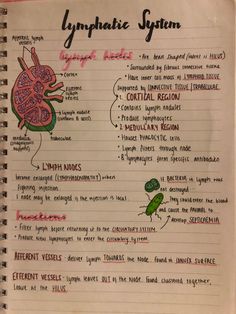 Lymphatic System
Afferent lymph vessels
lymph nodes
• Are bean shaped (indent is HILUS)
• Surrounded by fibrous connective tissue
• Have inner
mass of LYMPHOID TISSUE
Supported by CONNECTIVE TISSUE (TRABECULAE)
Cortex
efferent lymph vessels
lymph nodules
trabeculae
medulla
1. CORTICAL REGION
• Contains lymph nodules
• Produce lymphocytes
2. MEDULLARY REGION
• Houses PHAGOCYTIC CELLS
• Lymph filters through node
• B lymphocytes form specific antibodies
LYMPH NODES
become enlarged (LYMPHADENOPATHY) when
fighting infection
1 node may be enlarged if the infection is local
If BACTERIA in lymph node
not destroyed
They could enter the blood
and cause the ANIMAL to
develop SEPTICAEMIA
functions
• Filter lymph before returning it to the CIRCULATORY SYSTEM
• Produce new lymphocytes to enter the circulatory system
AFFERENT VESSELS - deliver lymph TOWARDS the NODE, found on
SURFACE
EFFERENT VESSELS - lymph leaves OUT of the NODE, found clustered together,
leave at the HILUS